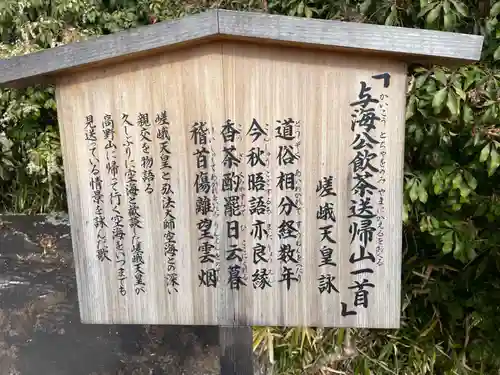 「与海公飲茶送帰山一首」
嵯峨天皇 詠
道俗相分経数年
今秋晤語亦良縁
香茶酌罷日云暮
稽首傷離望雲烟
嵯峨天皇と弘法大師空海との深い
親交を物語る
久しぶりに空海と歓談した嵯峨天皇が
高野山に帰って行く空海をいつまでも
見送っている情景を詠んだ歌